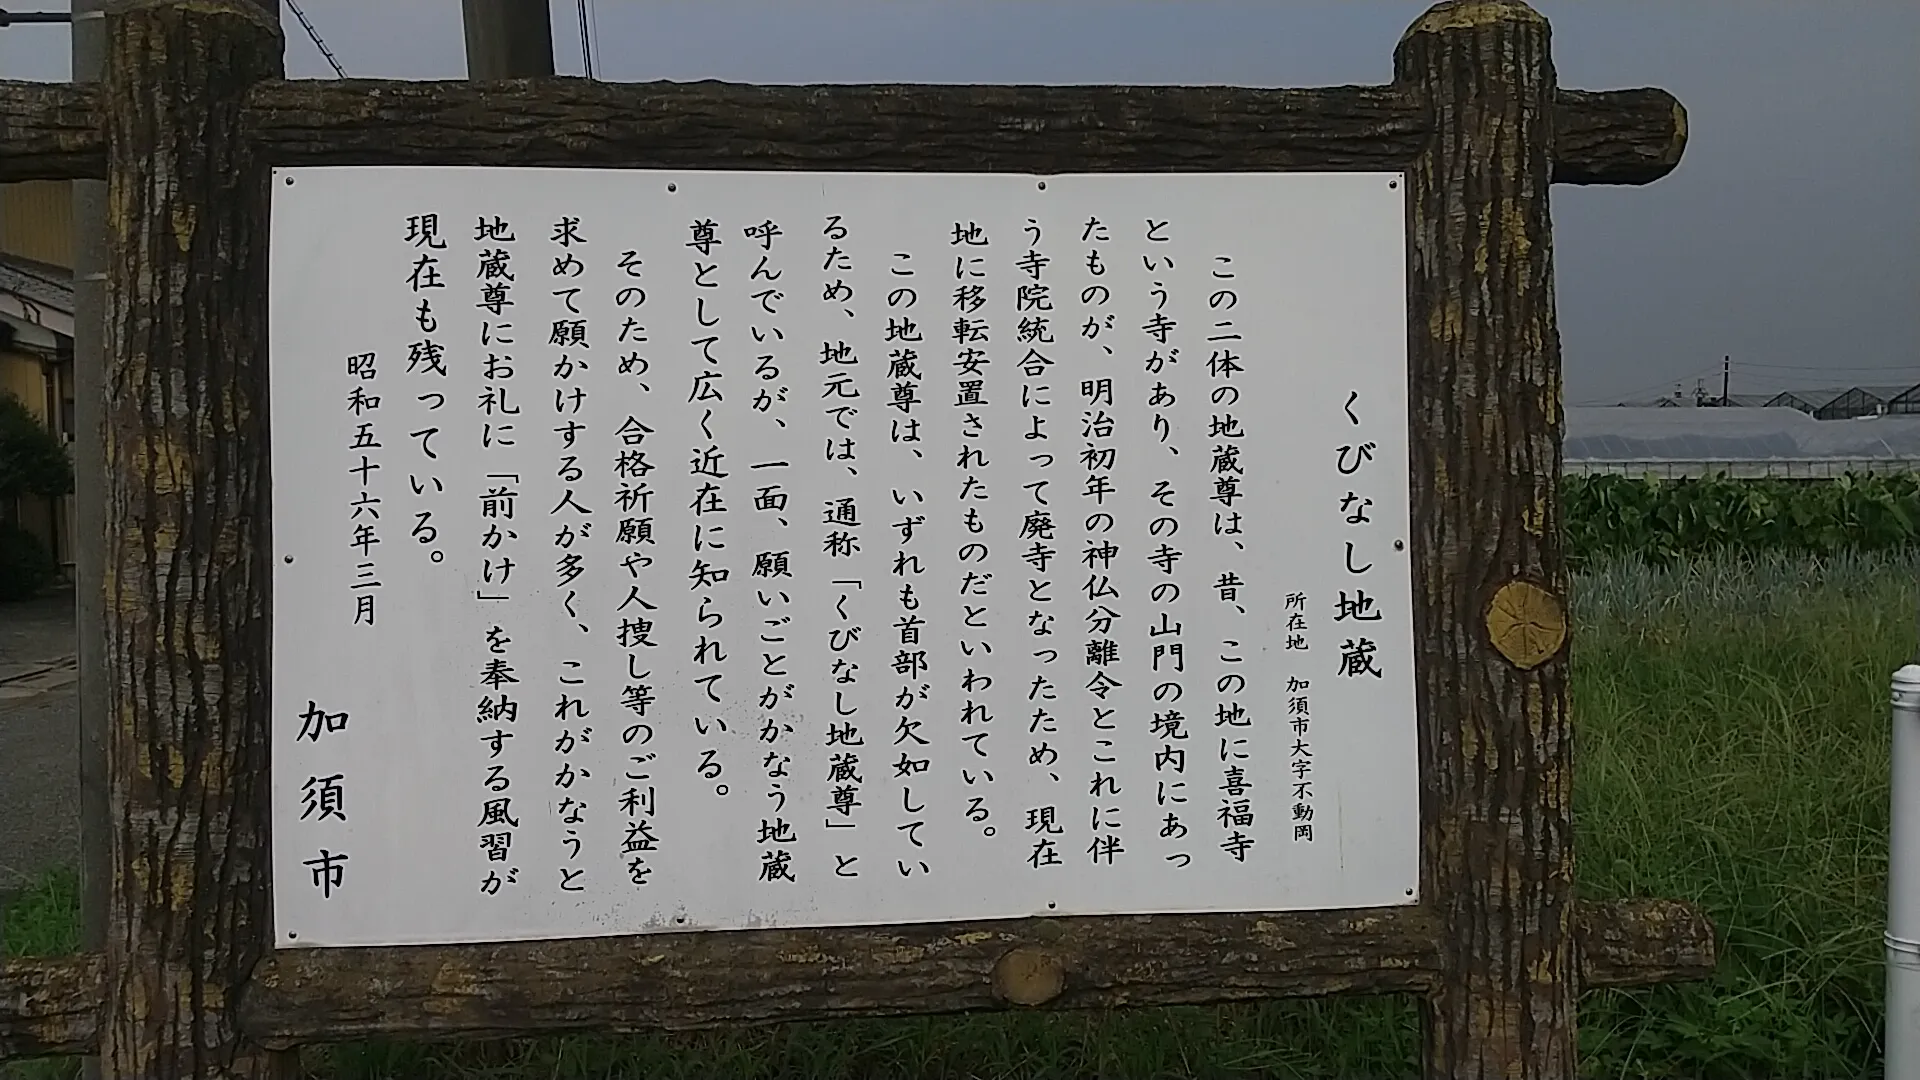 くびなし地蔵
所在地　加須市大字不動岡
この二体の地蔵尊は、昔、この地に喜福寺
という寺があり、その寺の山門の境内にあっ
たものが、明治初年の神仏分離令とこれに伴
う寺院統合によって廃寺となったため、現在
地に移転安置されたものだといわれている。
この地蔵尊は、いずれも首部が欠如してい
るため、地元では、通称「くびなし地蔵尊」と
呼んでいるが、一面、願いごとがかなう地蔵
尊として広く近在に知られている。
そのため、合格祈願や人捜し等のご利益を
求めて願かけする人が多く、これがかなうと
地蔵尊にお礼に「前かけ」を奉納する風習が
現在も残っている。
昭和五十六年三月
加須市